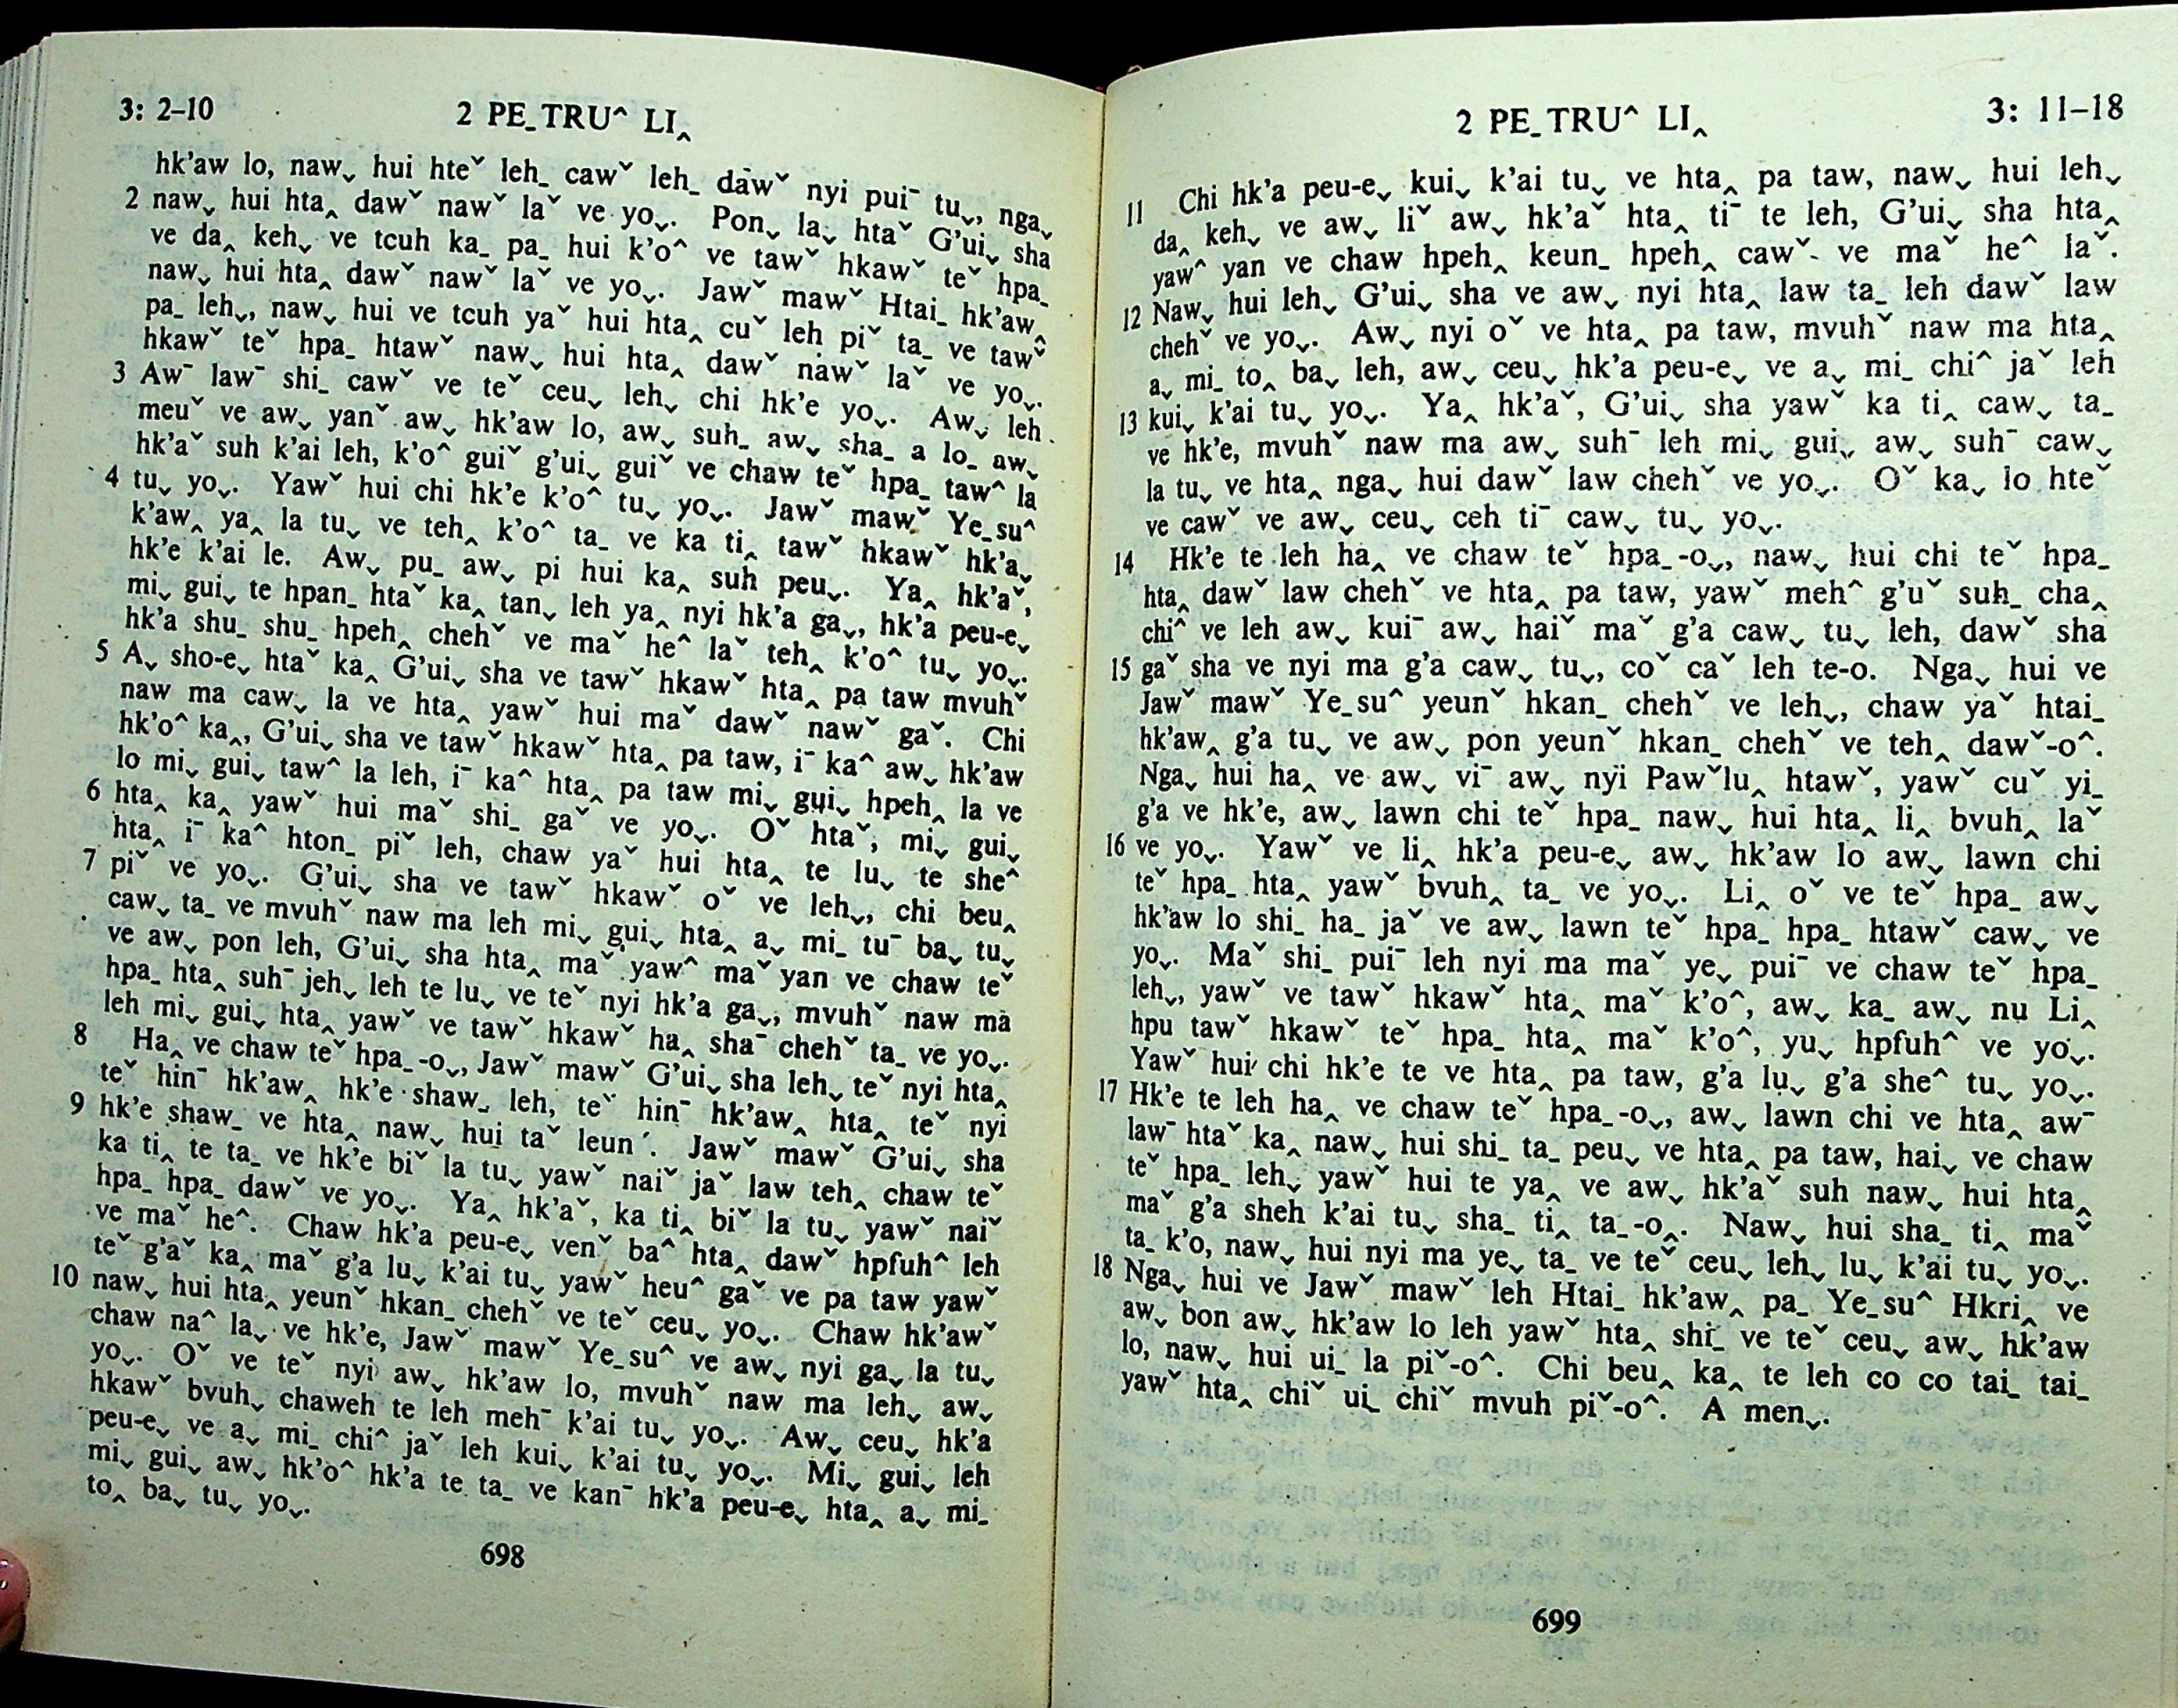 3: 2–10
2 PE_TRU^ LI‸
hk'aw lo, naw⌄ hui hteˇ leh_ cawˇ leh_ dawˇ nyi puiˉ tu⌄, nga⌄
2 naw⌄ hui hta‸ dawˇ nawˇ laˇ ve yo⌄. Pon⌄ la⌄ htaˇ G'ui⌄ sha
ve da‸ keh⌄ ve tcuh ka_ pa_ hui k'o^ ve tawˇ hkawˇ teˇ hpa_
naw⌄ hui hta‸ dawˇ nawˇ laˇ ve yo⌄. Jawˇ mawˇ Htai_ hk'aw‸
pa_ leh⌄, naw⌄ hui ve tcuh yaˇ hui hta‸ cuˇ leh piˇ ta_ ve tawˇ
hkawˇ teˇ hpa_ htawˇ naw⌄ hui hta‸ dawˇ nawˇ laˇ ve yo⌄.
3 Awˉ lawˉ shi_ cawˇ ve teˇ ceu⌄ leh⌄ chi hk'e yo⌄. Aw⌄ leh
meuˇ ve aw⌄ yanˇ aw⌄ hk'aw lo, aw⌄ suh_ aw⌄ sha_ a lo_ aw⌄
hk'aˇ suh k'ai leh, k'o^ guiˇ g'ui⌄ guiˇ ve chaw teˇ hpa_ taw^ la
4 tu⌄ yo⌄. Yawˇ hui chi hk'e k'o^ tu⌄ yo⌄. Jawˇ mawˇ Ye_su^
k'aw‸ ya‸ la tu⌄ ve teh‸ k'o^ ta_ ve ka ti‸ tawˇ hkawˇ hk'a⌄
hk'e k'ai le. Aw⌄ pu_ aw⌄ pi hui ka‸ suh peu⌄. Ya‸ hk'aˇ,
mi⌄ gui⌄ te hpan_ htaˇ ka‸ tan⌄ leh ya‸ nyi hk'a ga⌄, hk'a peu-e⌄
hk'a shu_ shu_ hpeh‸ chehˇ ve maˇ he^ laˇ teh‸ k'o^ tu⌄ yo⌄.
5 A⌄ sho-e⌄ htaˇ ka‸ G'ui⌄ sha ve tawˇ hkawˇ hta‸ pa taw mvuhˇ
naw ma caw⌄ la ve hta‸ yawˇ hui maˇ dawˇ nawˇ gaˇ. Chi
hk'o^ ka‸, G'ui⌄ sha ve tawˇ hkawˇ hta‸ pa taw, iˉ ka^ aw⌄ hk'aw
lo mi⌄ gui⌄ taw^ la leh, iˉ ka^ hta‸ pa taw mi⌄ gui⌄ hpeh‸ la ve
6 hta‸ ka‸ yawˇ hui maˇ shi_ gaˇ ve yo⌄. Oˇ htaˇ, mi⌄ gui⌄
hta‸ iˉ ka^ hton_ piˇ leh, chaw yaˇ hui hta‸ te lu⌄ te she^
7 piˇ ve yo⌄. G'ui⌄ sha ve tawˇ hkawˇ oˇ ve leh⌄, chi beu‸
caw⌄ ta_ ve mvuhˇ naw ma leh mi⌄ gui⌄ hta‸ a⌄ mi_ tuˉ ba⌄ tu⌄
ve aw⌄ pon leh, G'ui⌄ sha hta‸ maˇ yaw^ maˇ yan ve chaw teˇ
hpa_ hta‸ suhˉ jeh⌄ leh te lu⌄ ve teˇ nyi hk'a ga⌄, mvuhˇ naw ma
leh mi⌄ gui⌄ hta‸ yawˇ ve tawˇ hkawˇ ha‸ shaˉ chehˇ ta_ ve yo⌄.
8 Ha‸ ve chaw teˇ hpa_-o⌄, Jawˇ mawˇ G'ui⌄ sha leh⌄ teˇ nyi hta‸
teˇ hinˉ hk'aw‸ hk'e shaw_ leh, teˇ hinˉ hk'aw‸ hta‸ teˇ nyi
9 hk'e shaw_ ve hta‸ naw⌄ hui taˇ leunˊ. Jawˇ mawˇ G'ui⌄ sha
ka ti‸ te ta_ ve hk'e biˇ la tu⌄ yawˇ naiˇ jaˇ law teh‸ chaw teˇ
hpa_ hpa_ dawˇ ve yo⌄. Ya‸ hk'aˇ, ka ti‸ biˇ la tu⌄ yawˇ naiˇ
ve maˇ he^. Chaw hk'a peu-e⌄ venˇ ba^ hta‸ dawˇ hpfuh^ leh
teˇ g'aˇ ka‸ maˇ g'a lu⌄ k'ai tu⌄ yawˇ heu^ gaˇ ve pa taw yawˇ
10 naw⌄ hui hta‸ yeunˇ hkan_ chehˇ ve teˇ ceu⌄ yo⌄. Chaw hk'awˇ
chaw na^ la⌄ ve hk'e, Jawˇ mawˇ Ye_su^ ve aw⌄ nyi ga⌄ la tu⌄
yo⌄. Oˇ ve teˇ nyi aw⌄ hk'aw lo, mvuhˇ naw ma leh⌄ aw⌄
hkawˇ bvuh⌄ chaweh te leh mehˉ k'ai tu⌄ yo⌄. Aw⌄ ceu⌄ hk'a
peu-e⌄ ve a⌄ mi_ chi^ jaˇ leh kui⌄ k'ai tu⌄ yo⌄. Mi⌄ gui⌄ leh
mi⌄ gui⌄ aw⌄ hk'o^ hk'a te ta_ ve kanˉ hk'a peu-e⌄ hta‸ a⌄ mi_
to‸ ba⌄ tu⌄ yo⌄.
698
2 PE_TRU^ LI‸
3: 11–18
11 Chi hk'a peu-e⌄ kui⌄ k'ai tu⌄ ve hta‸ pa taw, naw⌄ hui leh⌄
da‸ keh⌄ ve aw⌄ liˇ aw⌄ hk'aˇ hta‸ tiˉ te leh, G'ui⌄ sha hta‸
yaw^ yan ve chaw hpeh‸ keun_ hpeh‸ cawˇ ve maˇ he^ laˇ.
12 Naw⌄ hui leh⌄ G'ui⌄ sha ve aw⌄ nyi hta‸ law ta_ leh dawˇ law
chehˇ ve yo⌄. Aw⌄ nyi oˇ ve hta‸ pa taw, mvuhˇ naw ma hta‸
a⌄ mi_ to‸ ba⌄ leh, aw⌄ ceu⌄ hk'a peu-e⌄ ve a⌄ mi_ chi^ jaˇ leh
13 kui⌄ k'ai tu⌄ yo⌄. Ya‸ hk'aˇ, G'ui⌄ sha yawˇ ka ti‸ caw⌄ ta_
ve hk'e, mvuhˇ naw ma aw⌄ suhˉ leh mi⌄ gui⌄ aw⌄ suhˉ caw⌄
la tu⌄ ve hta‸ nga⌄ hui dawˇ law chehˇ ve yo⌄. Oˇ ka⌄ lo hteˇ
ve cawˇ ve aw⌄ ceu⌄ ceh tiˉ caw⌄ tu⌄ yo⌄.
14 Hk'e te leh ha‸ ve chaw teˇ hpa_-o⌄, naw⌄ hui chi teˇ hpa_
hta‸ dawˇ law chehˇ ve hta‸ pa taw, yawˇ meh^ g'uˇ suh_ cha‸
chi^ ve leh aw⌄ kuiˉ aw⌄ haiˇ maˇ g'a caw⌄ tu⌄ leh, dawˇ sha
15 gaˇ sha ve nyi ma g'a caw⌄ tu⌄, coˇ caˇ leh te-o. Nga⌄ hui ve
Jawˇ mawˇ Ye_su^ yeunˇ hkan_ chehˇ ve leh⌄, chaw yaˇ htai_
hk'aw‸ g'a tu⌄ ve aw⌄ pon yeunˇ hkan_ chehˇ ve teh‸ dawˇ-o^.
Nga⌄ hui ha‸ ve aw⌄ viˉ aw⌄ nyi Pawˇlu‸ htawˇ, yawˇ cuˇ yi_
g'a ve hk'e, aw⌄ lawn chi teˇ hpa_ naw⌄ hui hta‸ li‸ bvuh‸ laˇ
16 ve yo⌄. Yawˇ ve li‸ hk'a peu-e⌄ aw⌄ hk'aw lo aw⌄ lawn chi
teˇ hpa_ hta‸ yawˇ bvuh‸ ta_ ve yo⌄. Li‸ oˇ ve teˇ hpa_ aw⌄
hk'aw lo shi_ ha_ jaˇ ve aw⌄ lawn teˇ hpa_ hpa_ htawˇ caw⌄ ve
yo⌄. Maˇ shi_ puiˉ leh nyi ma maˇ ye⌄ puiˉ ve chaw teˇ hpa_
leh⌄, yawˇ ve tawˇ hkawˇ hta‸ maˇ k'o^, aw⌄ ka_ aw⌄ nu Li‸
hpu tawˇ hkawˇ teˇ hpa_ hta‸ maˇ k'o^, yu⌄ hpfuh^ ve yo⌄.
Yawˇ hui chi hk'e te ve hta‸ pa taw, g'a lu⌄ g'a she^ tu⌄ yo⌄.
17 Hk'e te leh ha‸ ve chaw teˇ hpa_-o⌄, aw⌄ lawn chi ve hta‸ awˉ
lawˉ htaˇ ka‸ naw⌄ hui shi_ ta_ peu⌄ ve hta‸ pa taw, hai⌄ ve chaw
teˇ hpa_ leh⌄ yawˇ hui te ya‸ ve aw⌄ hk'aˇ suh naw⌄ hui hta‸
maˇ g'a sheh k'ai tu⌄ sha_ ti‸ ta_-o‸. Naw⌄ hui sha_ ti‸ maˇ
ta_ k'o, naw⌄ hui nyi ma ye⌄ ta_ ve teˇ ceu⌄ leh⌄ lu⌄ k'ai tu⌄ yo⌄.
18 Nga⌄ hui ve Jawˇ mawˇ leh Htai_ hk'aw‸ pa_ Ye_su^ Hkri‸ ve
aw⌄ bon aw⌄ hk'aw lo leh yawˇ hta‸ shi_ ve teˇ ceu⌄ aw⌄ hk'aw
lo, naw⌄ hui ui_ la piˇ-o^. Chi beu‸ ka‸ te leh co co tai_ tai_
yawˇ hta‸ chiˇ ui_ chiˇ mvuh piˇ-o^. A men⌄.
699